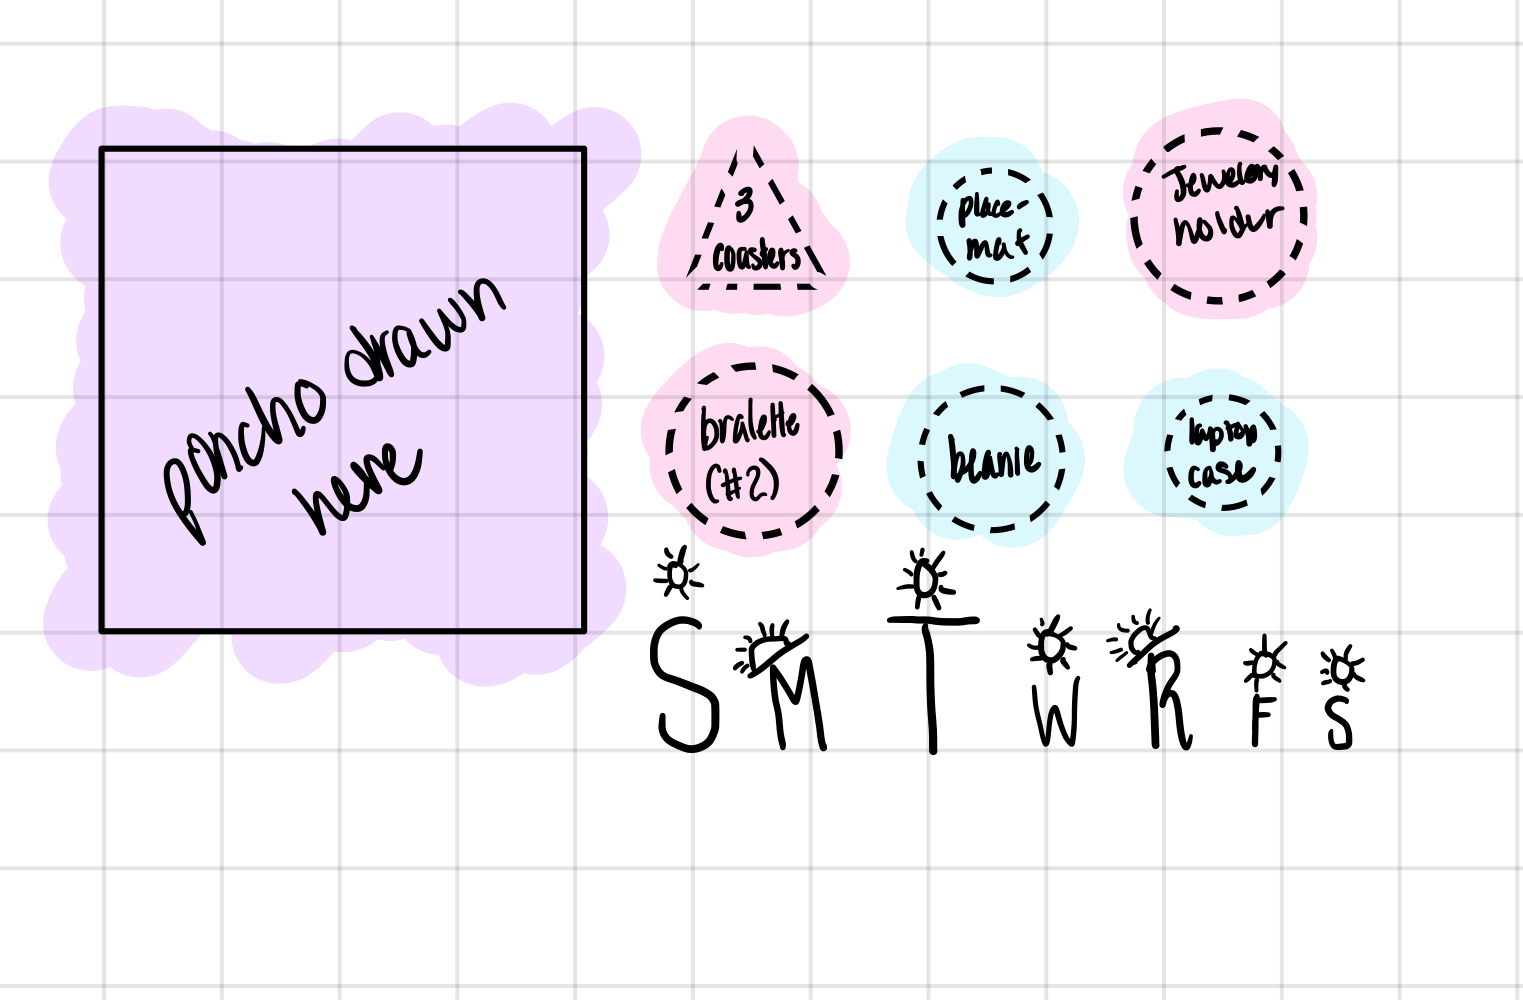 poncho drawn
here
3
coasters
place-
mat
Jewelery
holder
bralette
(#2)
beanie
laptop
case
S M T W R F S